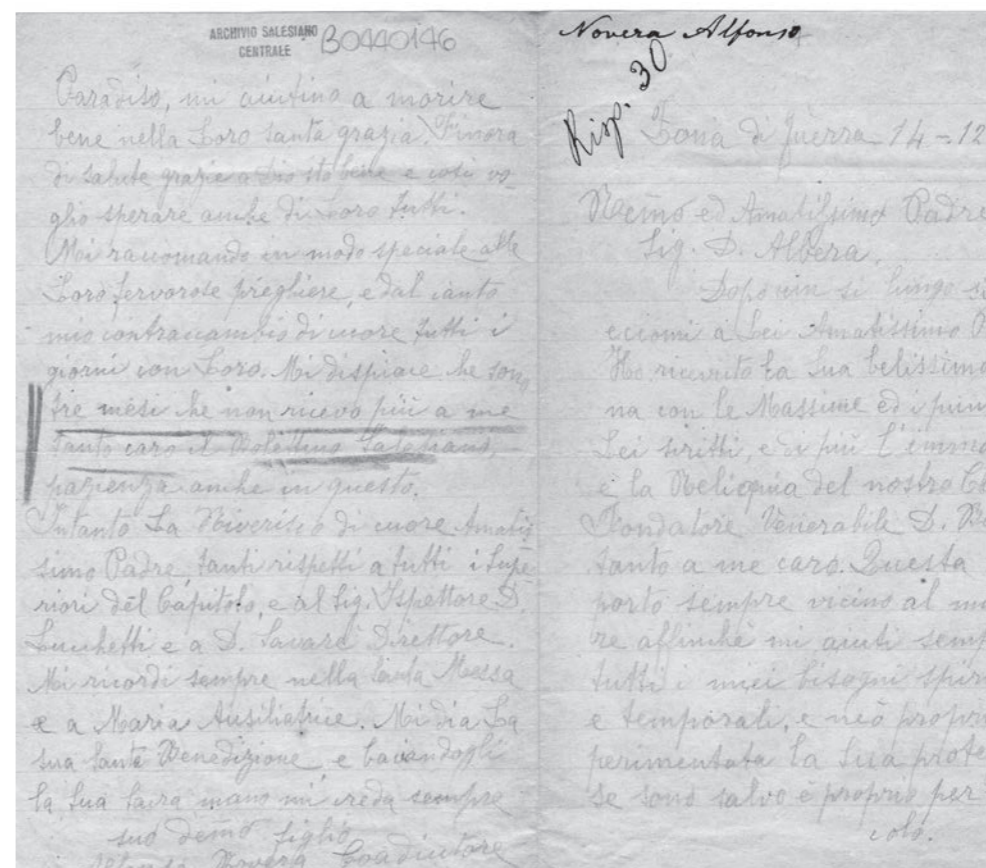 ARCHIVIO SALESIANO
CENTRALE
B0440146
Paradiso, mi aiutino a morire
bene nella Loro santa grazia. Finora
di salute grazie a Dio sto bene e così vo-
glio sperare anche di Loro tutti.
Mi raccomando in modo speciale alle
Loro fervorose preghiere, e dal canto
mio contraccambio di cuore tutti i
giorni con Loro. Mi dispiace che sono
tre mesi che non ricevo più a me
tanto caro il Bolettino Salesiano,
pazienza anche in questo.
Intanto La Riverisco di cuore Amatis
simo Padre, tanti rispetti a tutti i Supe
riori del Capitolo, e al Sig. Ispettore D.
Lucchetti e a D. Savarè Direttore.
Mi ricordi sempre nella Santa Messa
e a Maria Ausiliatrice. Mi dia La
sua Santa Benedizione, e baciandogli
la Sua Sacra mano mi creda sempre
suo demo figlio
Alfonso Rovera Coadiutore
Novera Alfonso
Risp. 30
Zona di Guerra 14-12
Remo ed Amatissimo Padre
Sig. D. Albera,
Dopo un sì lungo si
eccomi a Lei Amatissimo P
Ho ricevuto La Sua belissima
na con le Massime ed i
Lei scritti, e di più l'imma
e la Reliquia del nostro C
Fondatore Venerabile D. B
tanto a me caro. Questa
porto sempre vicino al mi
re affinchè mi aiuti semp
tutti i miei bisogni spir
e temporali, e proprio
perimentata La Sua prote
se sono salvo è proprio per
colo.